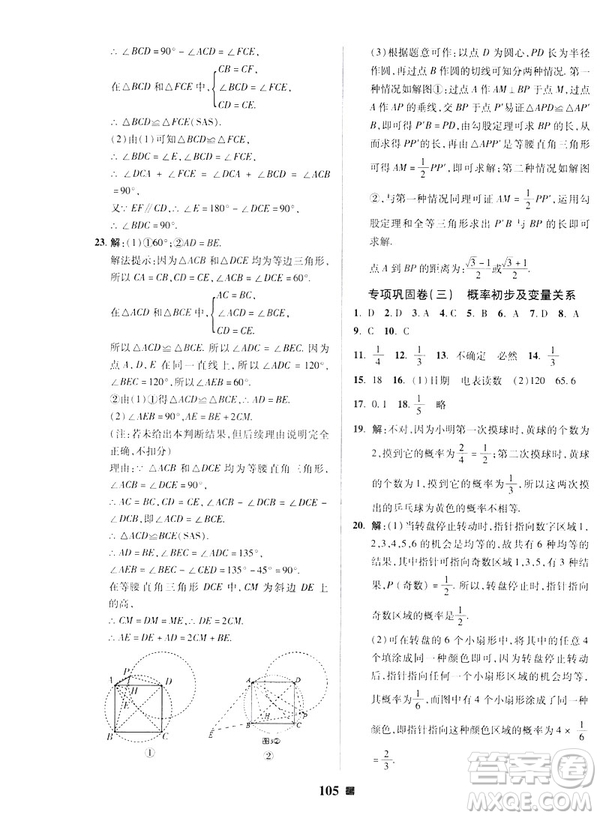 ∴ ∠BCD=90°-∠ACD=∠FCE,
在△BCD 和△FCE 中{CB=CF, ∠BCD=∠FCE, CD=CE,
∴ △BCD≌△FCE(SAS).
(2)由(1)可知△BCD≌△FCE,
∴ ∠BDC=∠E,∠BCD=∠FCE,
∴ ∠DCE=∠DCA+∠FCE=∠DCA+∠BCD
=90°,
∵ EF∥CD,∴ ∠E=180°-∠DCE=90°,
∴ ∠BDC=90°.
23. 解:(1)①60°;②AD=BE.
解法提示:因为△ACB 和△DCE 均为等边三角形,
所以 CA=CB,CD=CE,∠ACB=∠DCE=60°.
所以∠ACD=∠BCE.
在△ACD 和△BCE 中{AC=BC, ∠ACD=∠BCE, CD=CE,
所以△ACD≌△BCE.所以∠ADC=∠BEC.
点 A,D,E 在同一直线上,所以∠ADC=120°.所以
∠BEC=120°,所以∠AEB=∠BEC-∠CED=60°.
②由①得△ACD≌△BCE,所以 AD=BE.
(2)∠AEB=90°,AE=BE+2CM.
(注:若未给出本判断结果,但后续理由说明完全正
确,不扣分)
理由:∵ △ACB 和△DCE 均为等腰直角三角形,
∠ACB=∠DCE=90°,
∴ AC=BC,CD=CE,∠ACB-∠DCB=∠DCE-
∠DCB,即∠ACD=∠BCE,
∴ △ACD≌△BCE(SAS),
∴ AD=BE,∠BEC=∠ADC=135°.
∴ ∠AEB=∠BEC-∠CED=135°-45°=90°.
在等腰直角三角形 DCE 中,CM 为斜边 DE 上
的高,
∴ CM=DM=ME,∴ DE=2CM.
∴ AE=DE+AD=2CM+BE.
A P H D B C
①
A D H P E B C
图5②
②
(3)根据题意可作:以点 D 为圆心,PD 长为半径
作圆,过点 B 作圆的切线可分两种情况,第一种情
况如解图①;过点 A 作 AM⊥BP 于点 M,再过点
A 作 AP 的垂线,交 BP 于 P′易证△APD≌△AP′B,
即可求得 P′B=PD,由勾股定理可求得 PP′,
∵ △APP′是等腰直角三角形,
即可求得 AM=1/2PP′;第二种情况如解图
②,与第一种情况同理可证 AM=1/2PP′,应用勾股
定理和全等三角形可求得 P′B 与 BP 的长,从而
求解.
点 A 到 BP 的距离为:(√3-1)/2 或(√3+1)/2.
专项巩固卷(三) 概率初步及变量关系
1. D 2. D 3. A 4. C 5. B 6. B 7. D 8. A
9. C 10. C
11. 1/4 12. 1/3 13. 不确定 必然 14. 1/4
15. 18 16. (1)日期 电表读数 (2)120 65.6
17. 0.1 18. 1/5 略
19. 解:不对,因为小明第一次摸球时,黄球的个数为
2,摸到它的概率为2/4=1/2,第二次摸球时,黄球的
个数为 1,摸到它的概率为1/3,所以这两次摸球,摸
出的乒乓球为黄色的概率不相等.
20. 解:(1)当转盘停止转动时,指针指向数字区域 1,
2,3,4,5,6 的机会是均等的,故共有 6 种均等的结
果,其中指针指向奇数区域 1,3,5 有 3 种可能的结
果,P(奇数)=3/6=1/2,所以,转盘停止时,指针指向
奇数区域的概率是1/2.
(2)可在转盘的 6 个小扇形中,将其中的任意 4 个
填涂成同一种颜色即可.当转盘停止时,指针指向
其中每一个小扇形区域的机会均等,都有1/6的机会,
其概率为1/6,由于图中有 4 个小扇形区域的颜色一
致,即指针指向这种颜色区域的概率为 4×1/6
=2/3.
105
答案圈
MXQE.COM